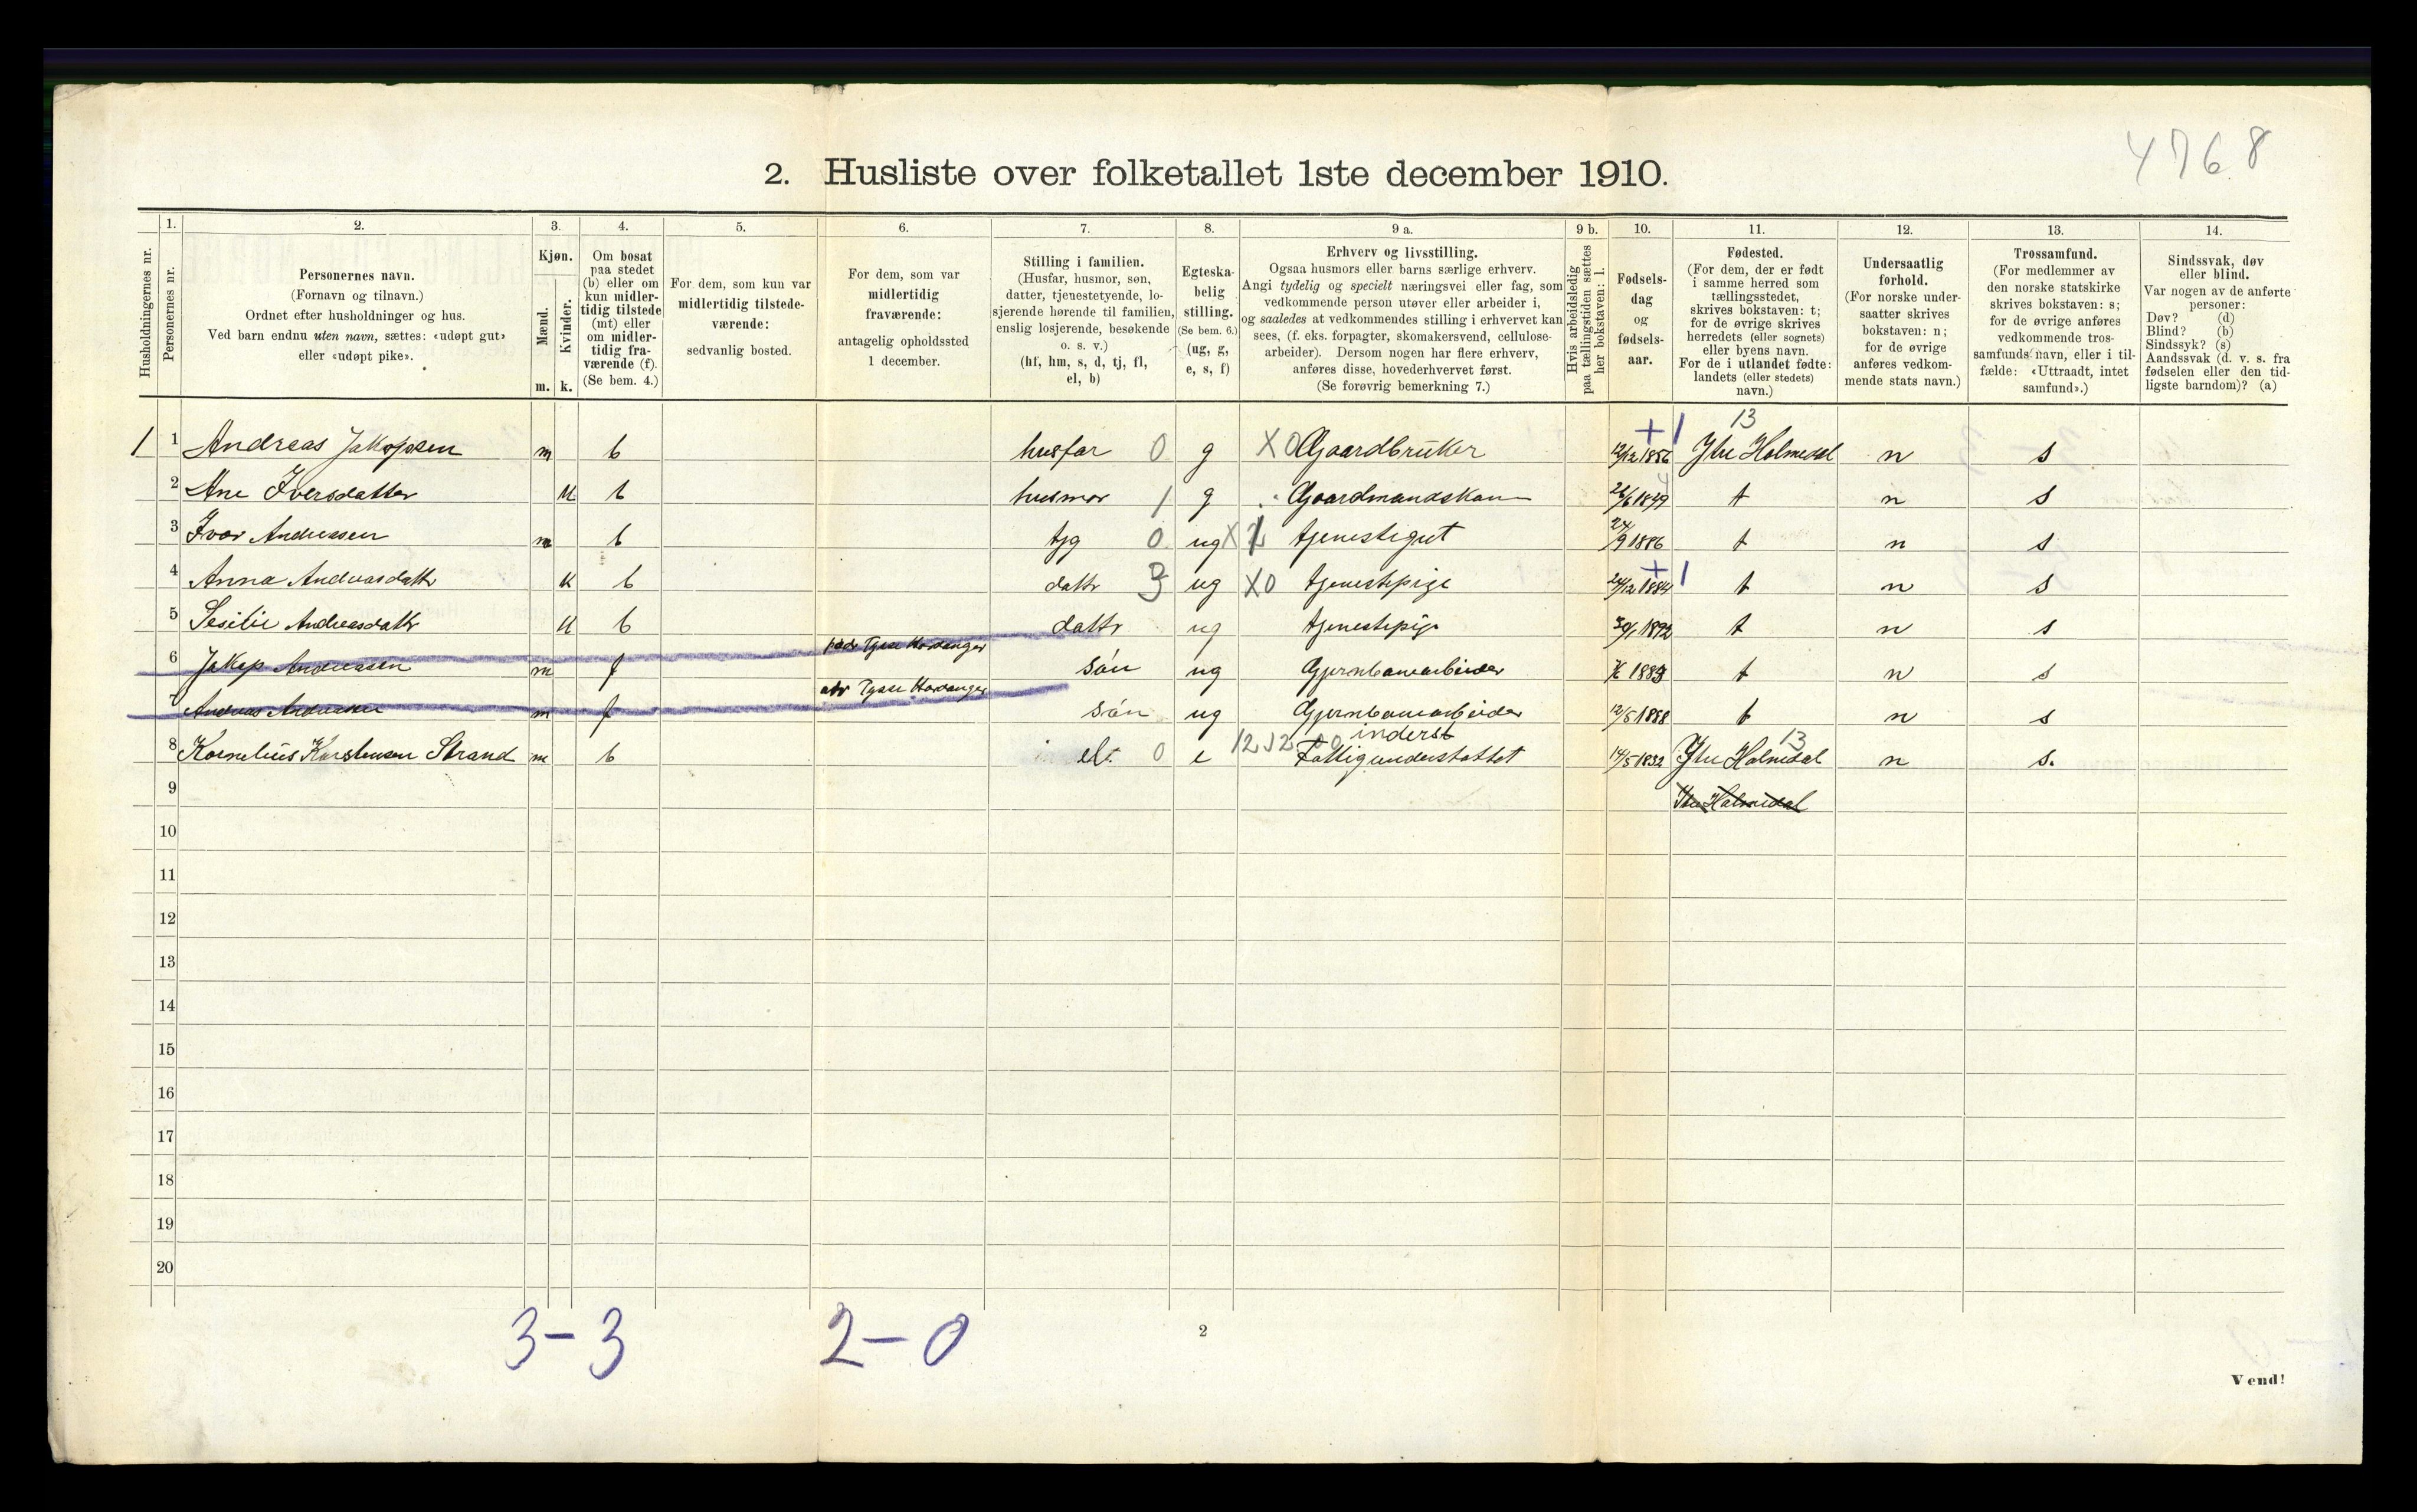 4768
2. Husliste over folketallet 1ste december 1910.
Husholdningernes nr.
1.
Personernes nr.
2.
Personernes navn.
(Fornavn og tilnavn.)
Ordnet efter husholdninger og hus.
Ved barn endnu uten navn, sættes: «udøpt gut»
eller «udøpt pike».
3.
Kjøn.
Mænd.
Kvinder.
m. k.
4.
Om bosat
paa stedet
(b) eller om
kun midler-
tidig tilstede
(mt) eller
om midler-
tidig fra-
værende (f).
(Se bem. 4.)
5.
For dem, som kun var
midlertidig tilstede-
værende:
sedvanlig bosted.
6.
For dem, som var
midlertidig
fraværende:
antagelig opholdssted
1 december.
7.
Stilling i familien.
(Husfar, husmor, søn,
datter, tjenestetyende, lo-
sjerende hørende til familien,
enslig losjerende, besøkende
o. s. v.)
(hf, hm, s, d, tj, fl,
el, b)
8.
Egteska-
belig
stilling.
(Se bem. 6.)
(ug, g,
e, s, f)
9 a.
Erhverv og livsstilling.
Ogsaa husmors eller barns særlige erhverv.
Angi tydelig og specielt næringsvei eller fag, som
vedkommende person utøver eller arbeider i,
og saaledes at vedkommendes stilling i erhvervet kan
sees, (f. eks. forpagter, skomakersvend, cellulose-
arbeider). Dersom nogen har flere erhverv,
anføres disse, hovederhvervet først.
(Se forøvrig bemerkning 7.)
9 b.
Hvis arbeidsledig
paa tællingstiden sættes
her bokstaven: l.
10.
Fødsels-
dag
og
fødsels-
aar.
11.
Fødested.
(For dem, der er født
i samme herred som
tællingsstedet,
skrives bokstaven: t;
for de øvrige skrives
herredets (eller sognets)
eller byens navn.
For de i utlandet fødte:
landets (eller stedets)
navn.)
12.
Undersaatlig
forhold.
(For norske under-
saatter skrives
bokstaven: n;
for de øvrige
anføres vedkom-
mende stats navn.)
13.
Trossamfund.
(For medlemmer av
den norske statskirke
skrives bokstaven: s;
for de øvrige anføres
vedkommende tros-
samfunds navn, eller i til-
fælde: «Uttraadt, intet
samfund».)
14.
Sindssvak, døv
eller blind.
Var nogen av de anførte
personer:
Døv? (d)
Blind? (b)
Sindssyk? (s)
Aandssvak (d. v. s. fra
fødselen eller den tid-
ligste barndom)? (a)
+1 13
1 1 Andreas Jakopsen m b husfar 0 g X0 Gaardbruker 12/12 1856 Ytre Holmedal n s
2 Ane Iversdatter k b husmor 1 g Gaardmandskone 26/6 1849 t n s
3 Ivar Andreasen m b tjg 0 ug X tjenestegut 24/9 1886 t n s
+1
4 Anna Andreasdattr k b dattr 3 ug X0 tjenestepige 24/12 1884 t n s
5 Sesilie Andreasdattr k b dattr ug tjenestepige 1892 t n s
Tysse Hardanger
6 Jakop Andreasen m f søn ug Gjernbanearbeider t n s
Tysse Hardanger
7 Andreas Andreasen m f søn ug Gjernbanearbeider 12/5 1888 t n s
12 12 00 inderst 13
8 Kornelius Karstensen Strand m b el. 0 e Fattigunderstøttet 14/5 1832 Ytre Holmedal n s.
9 Ytre Holmedal
10
11
12
13
14
15
16
17
18
19
20
3-3 2-0
2
Vend!